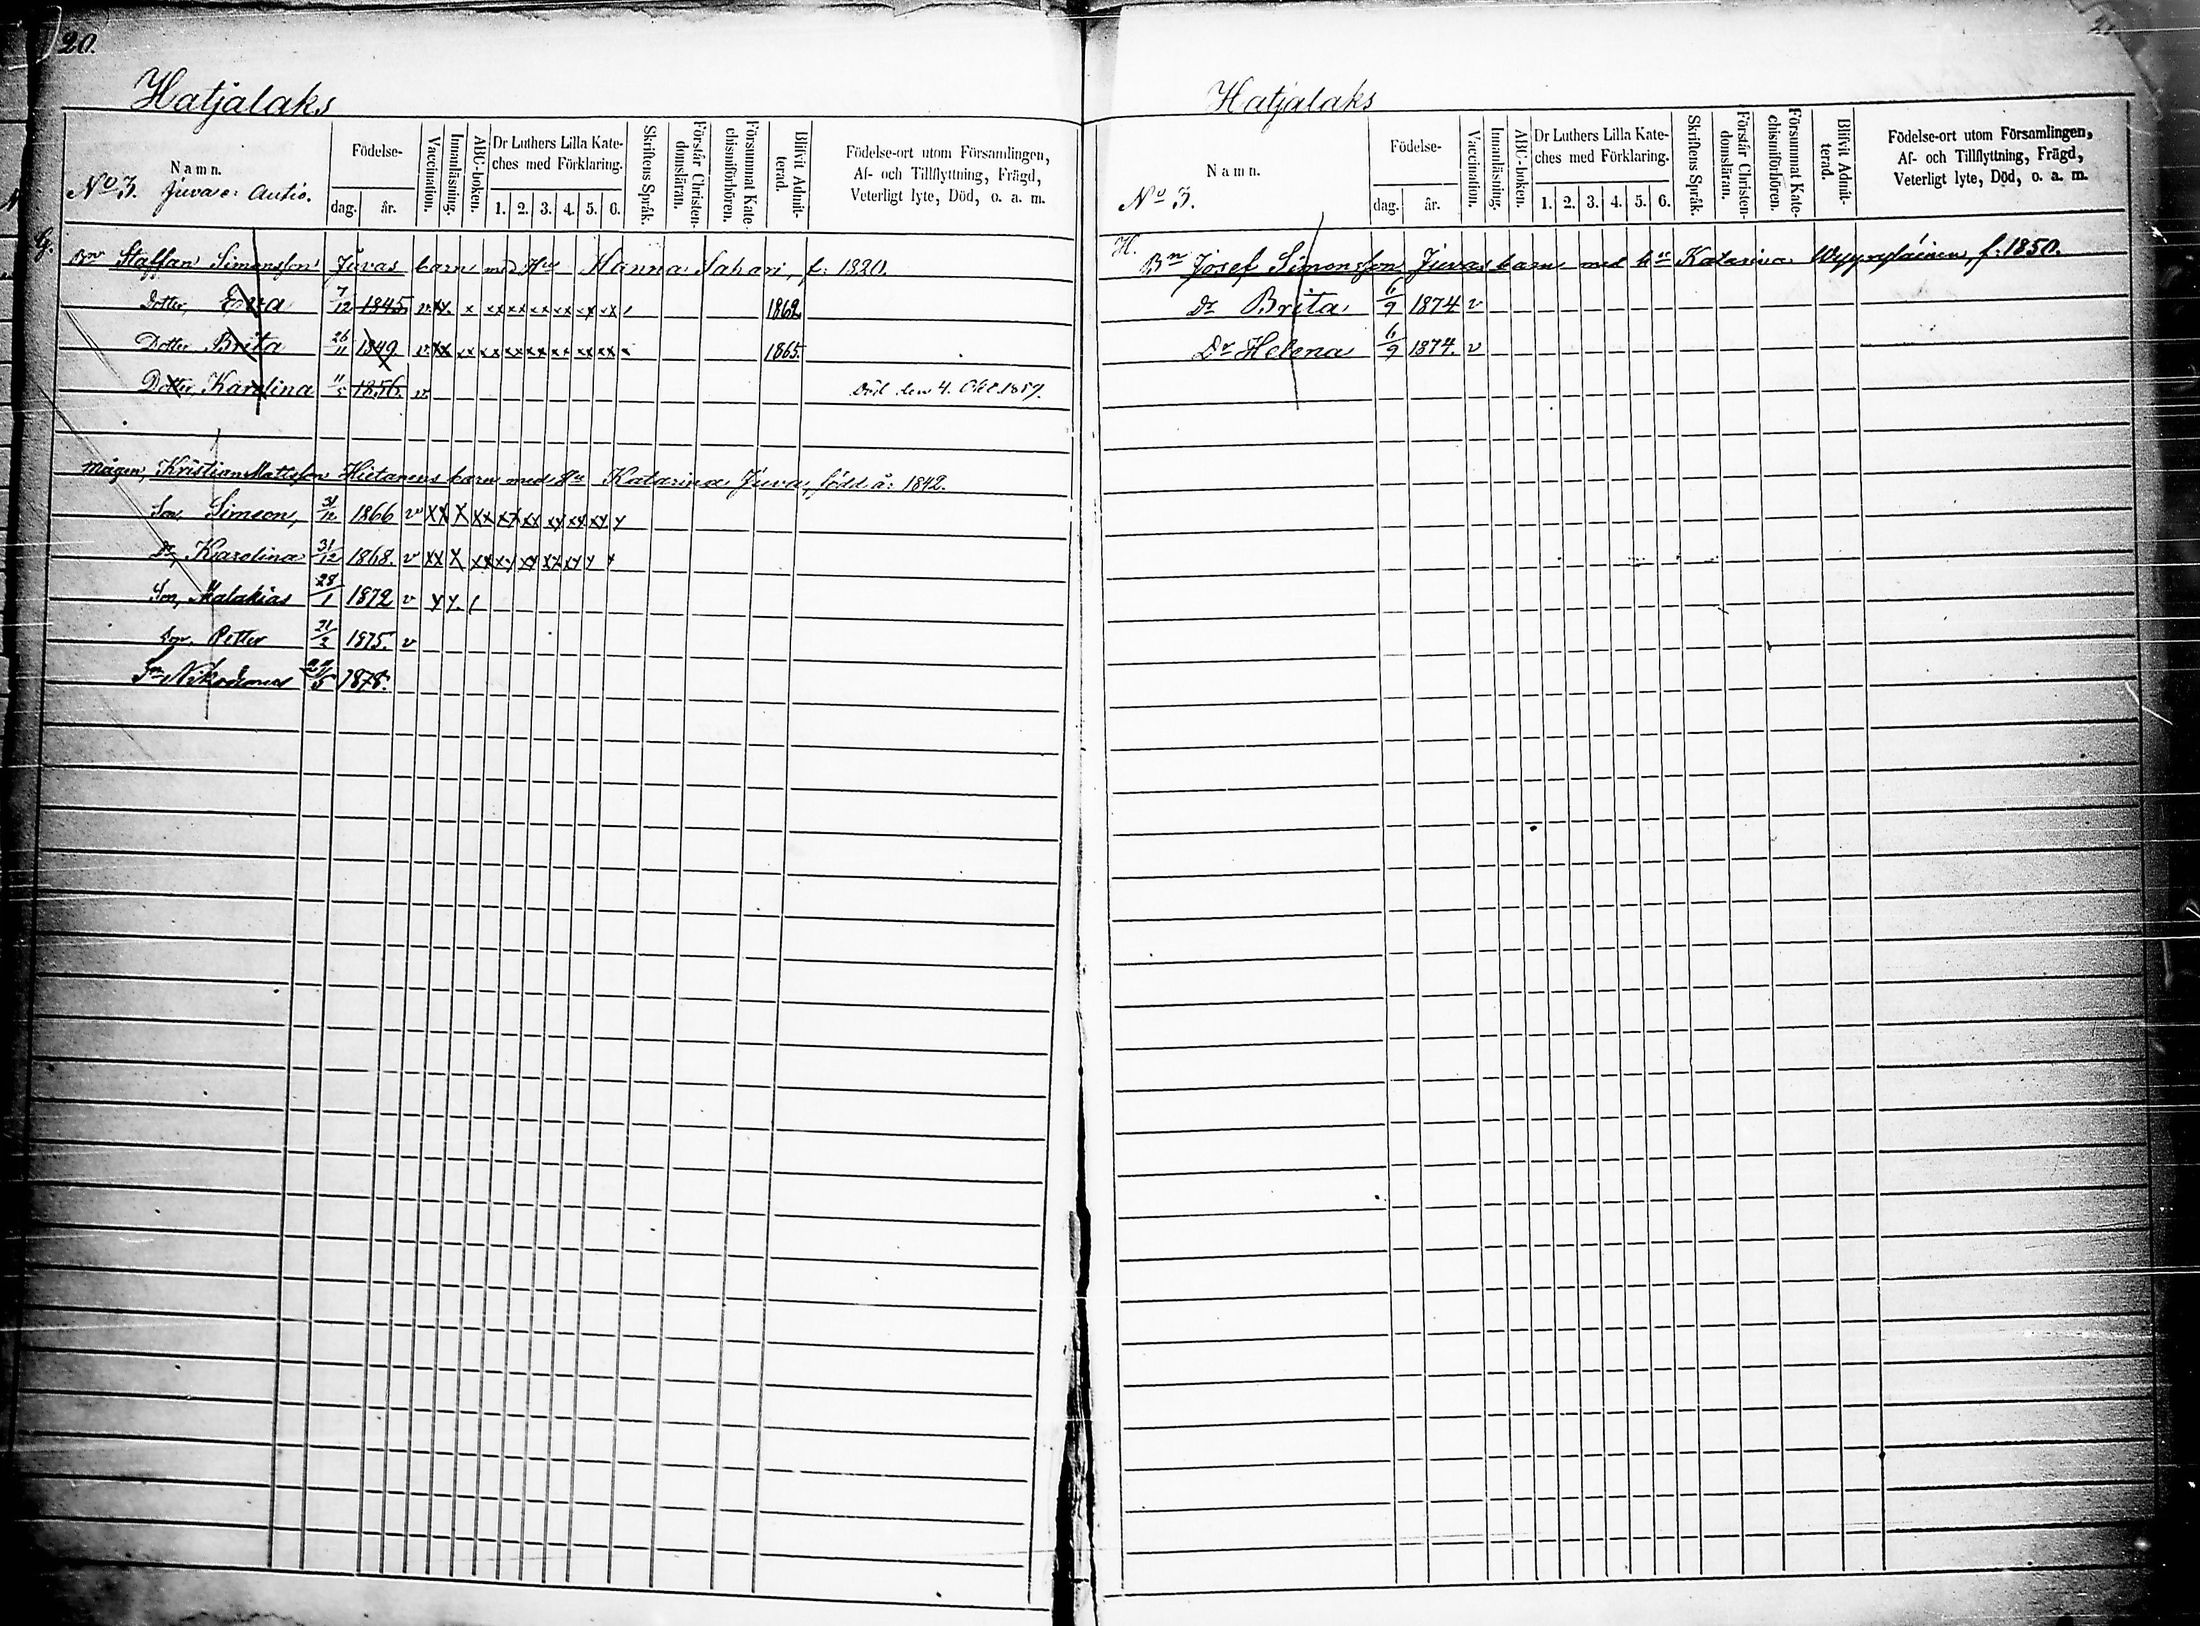 20.
Hatjalaks
Namn.
No 3. Juva e: Autio.
Födelse-
dag. år.
Vaccination.
Innanläsning.
ABC-boken.
Dr Luthers Lilla Kate-
ches med Förklaring.
1. 2. 3. 4. 5. 6.
Skriftens Språk.
Förstår Christen-
domsläran.
Försummat Kate-
chismiförhören.
Blifvit Admit-
terad.
Födelse-ort utom Församlingen,
Af- och Tillflyttning, Frägd,
Veterligt lyte, Död, o. a. m.
G. Bn Staffan Simonsson Juvas barn med Hu Hanna Sahari, f: 1820.
Dotter, Eva 7/12 1845 v xx x xx xx xx xx xx xx 1862
Dotter Brita 26/11 1849 v xx xx xx xx xx xx xx xx 1865.
Dotter, Karolina 11/5 1856. v Död den 4. Okt. 1857.
Mågen, Kristian Mattsson Hietanens barn med Hu Katarina Juva, född år 1842.
Son, Simeon, 31/12 1866 v xx x xx xx xx xx xx xx x
Dr, Karolina 31/12 1868. v xx x xx xx xx xx xx x x
Son, Malakias 28/1 1872 v
Son, Petter 21/2 1875. v
Sn Nikodemus 29/5 1878.
Hatjalaks
Namn.
No 3.
Födelse-
dag. år.
Vaccination.
Innanläsning.
ABC-boken.
Dr Luthers Lilla Kate-
ches med Förklaring.
1. 2. 3. 4. 5. 6.
Skriftens Språk.
Förstår Christen-
domsläran.
Försummat Kate-
chismiförhören.
Blifvit Admit-
terad.
Födelse-ort utom Församlingen,
Af- och Tillflyttning, Frägd,
Veterligt lyte, Död, o. a. m.
H. Bn Josef Simonsson Juvas barn med Katarina f. 1850.
Dr Brita 6/9 1874 v
Dr Helena 6/9 1874. v